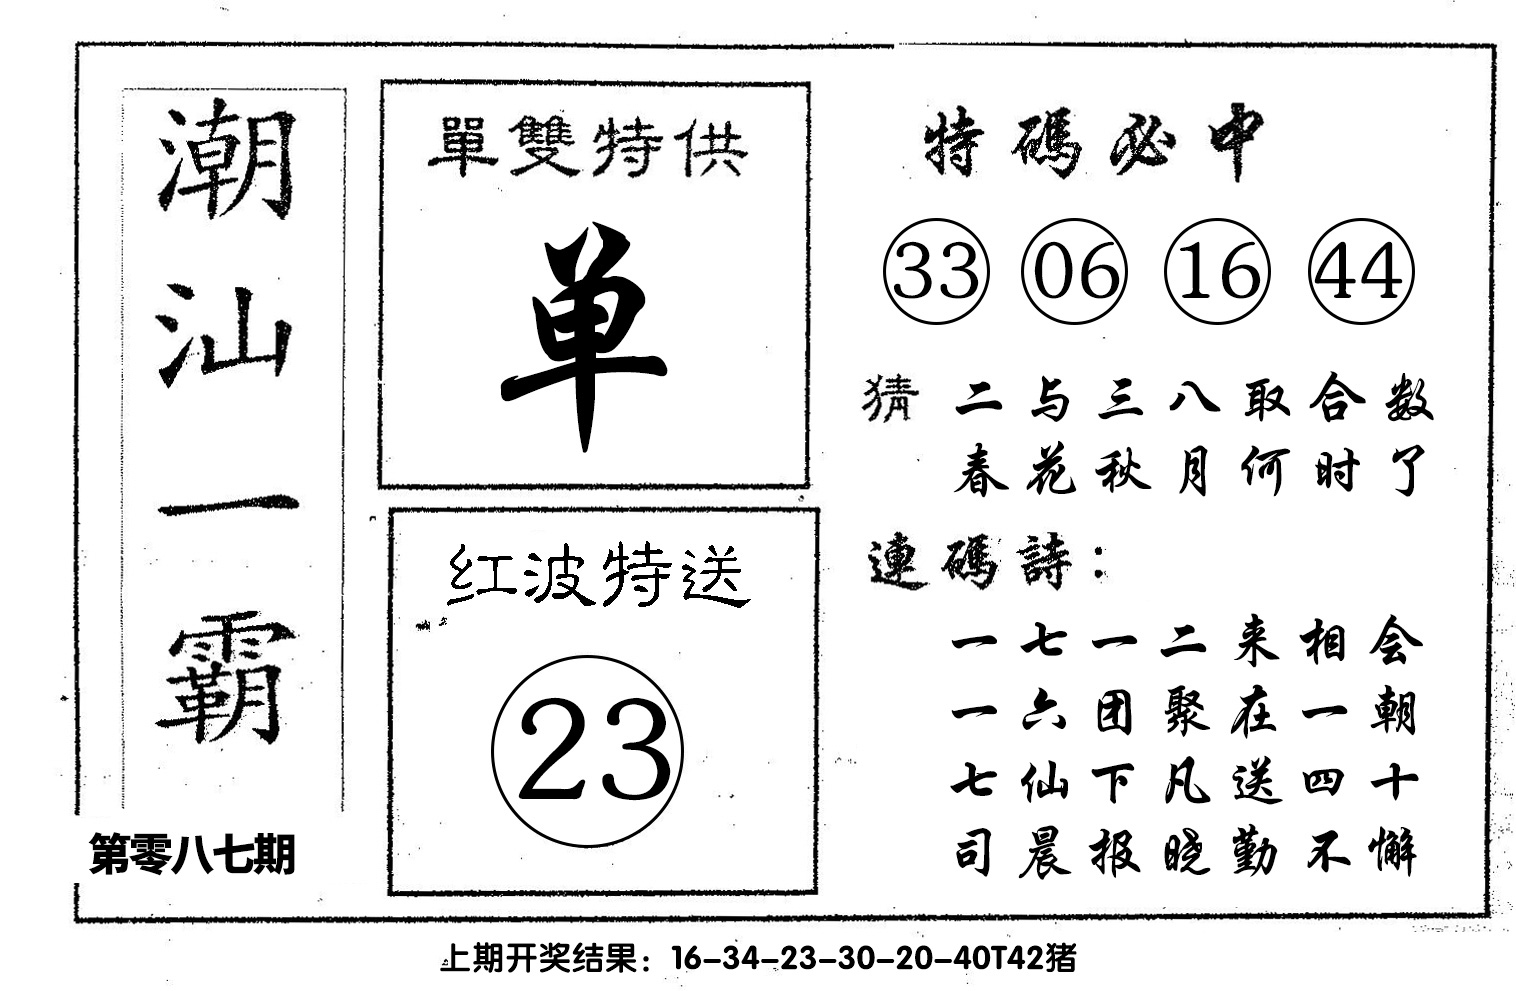 潮汕一霸
第零八七期
單雙特供
单
红波特送
23
特碼必中
33 06 16 44
猜 二与三八取合数
春花秋月何时了
連碼詩：
一七一二来相会
一六团聚在一朝
七仙下凡送四十
司晨报晓勤不懈
上期开奖结果：16-34-23-30-20-40T42猪